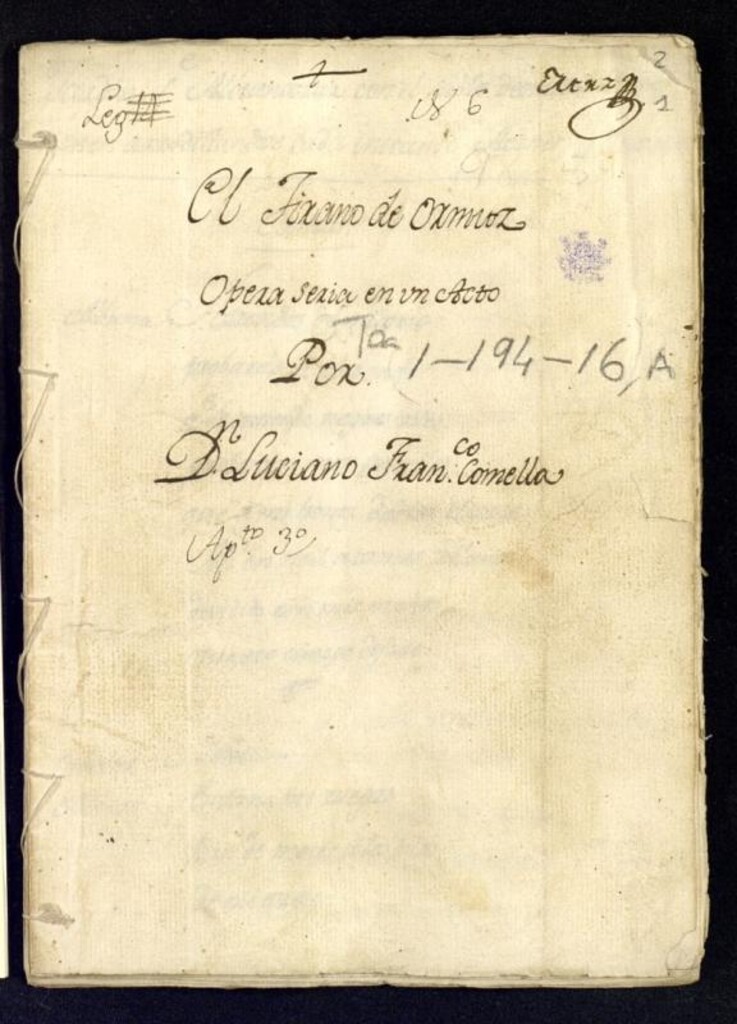 2
Leg
N 6
1
El Tirano de Ormuz
Opera seria en un Acto
Por.
Tea 1-194-16, A
Dn. Luciano Fran.co Comella
Apto. 3o